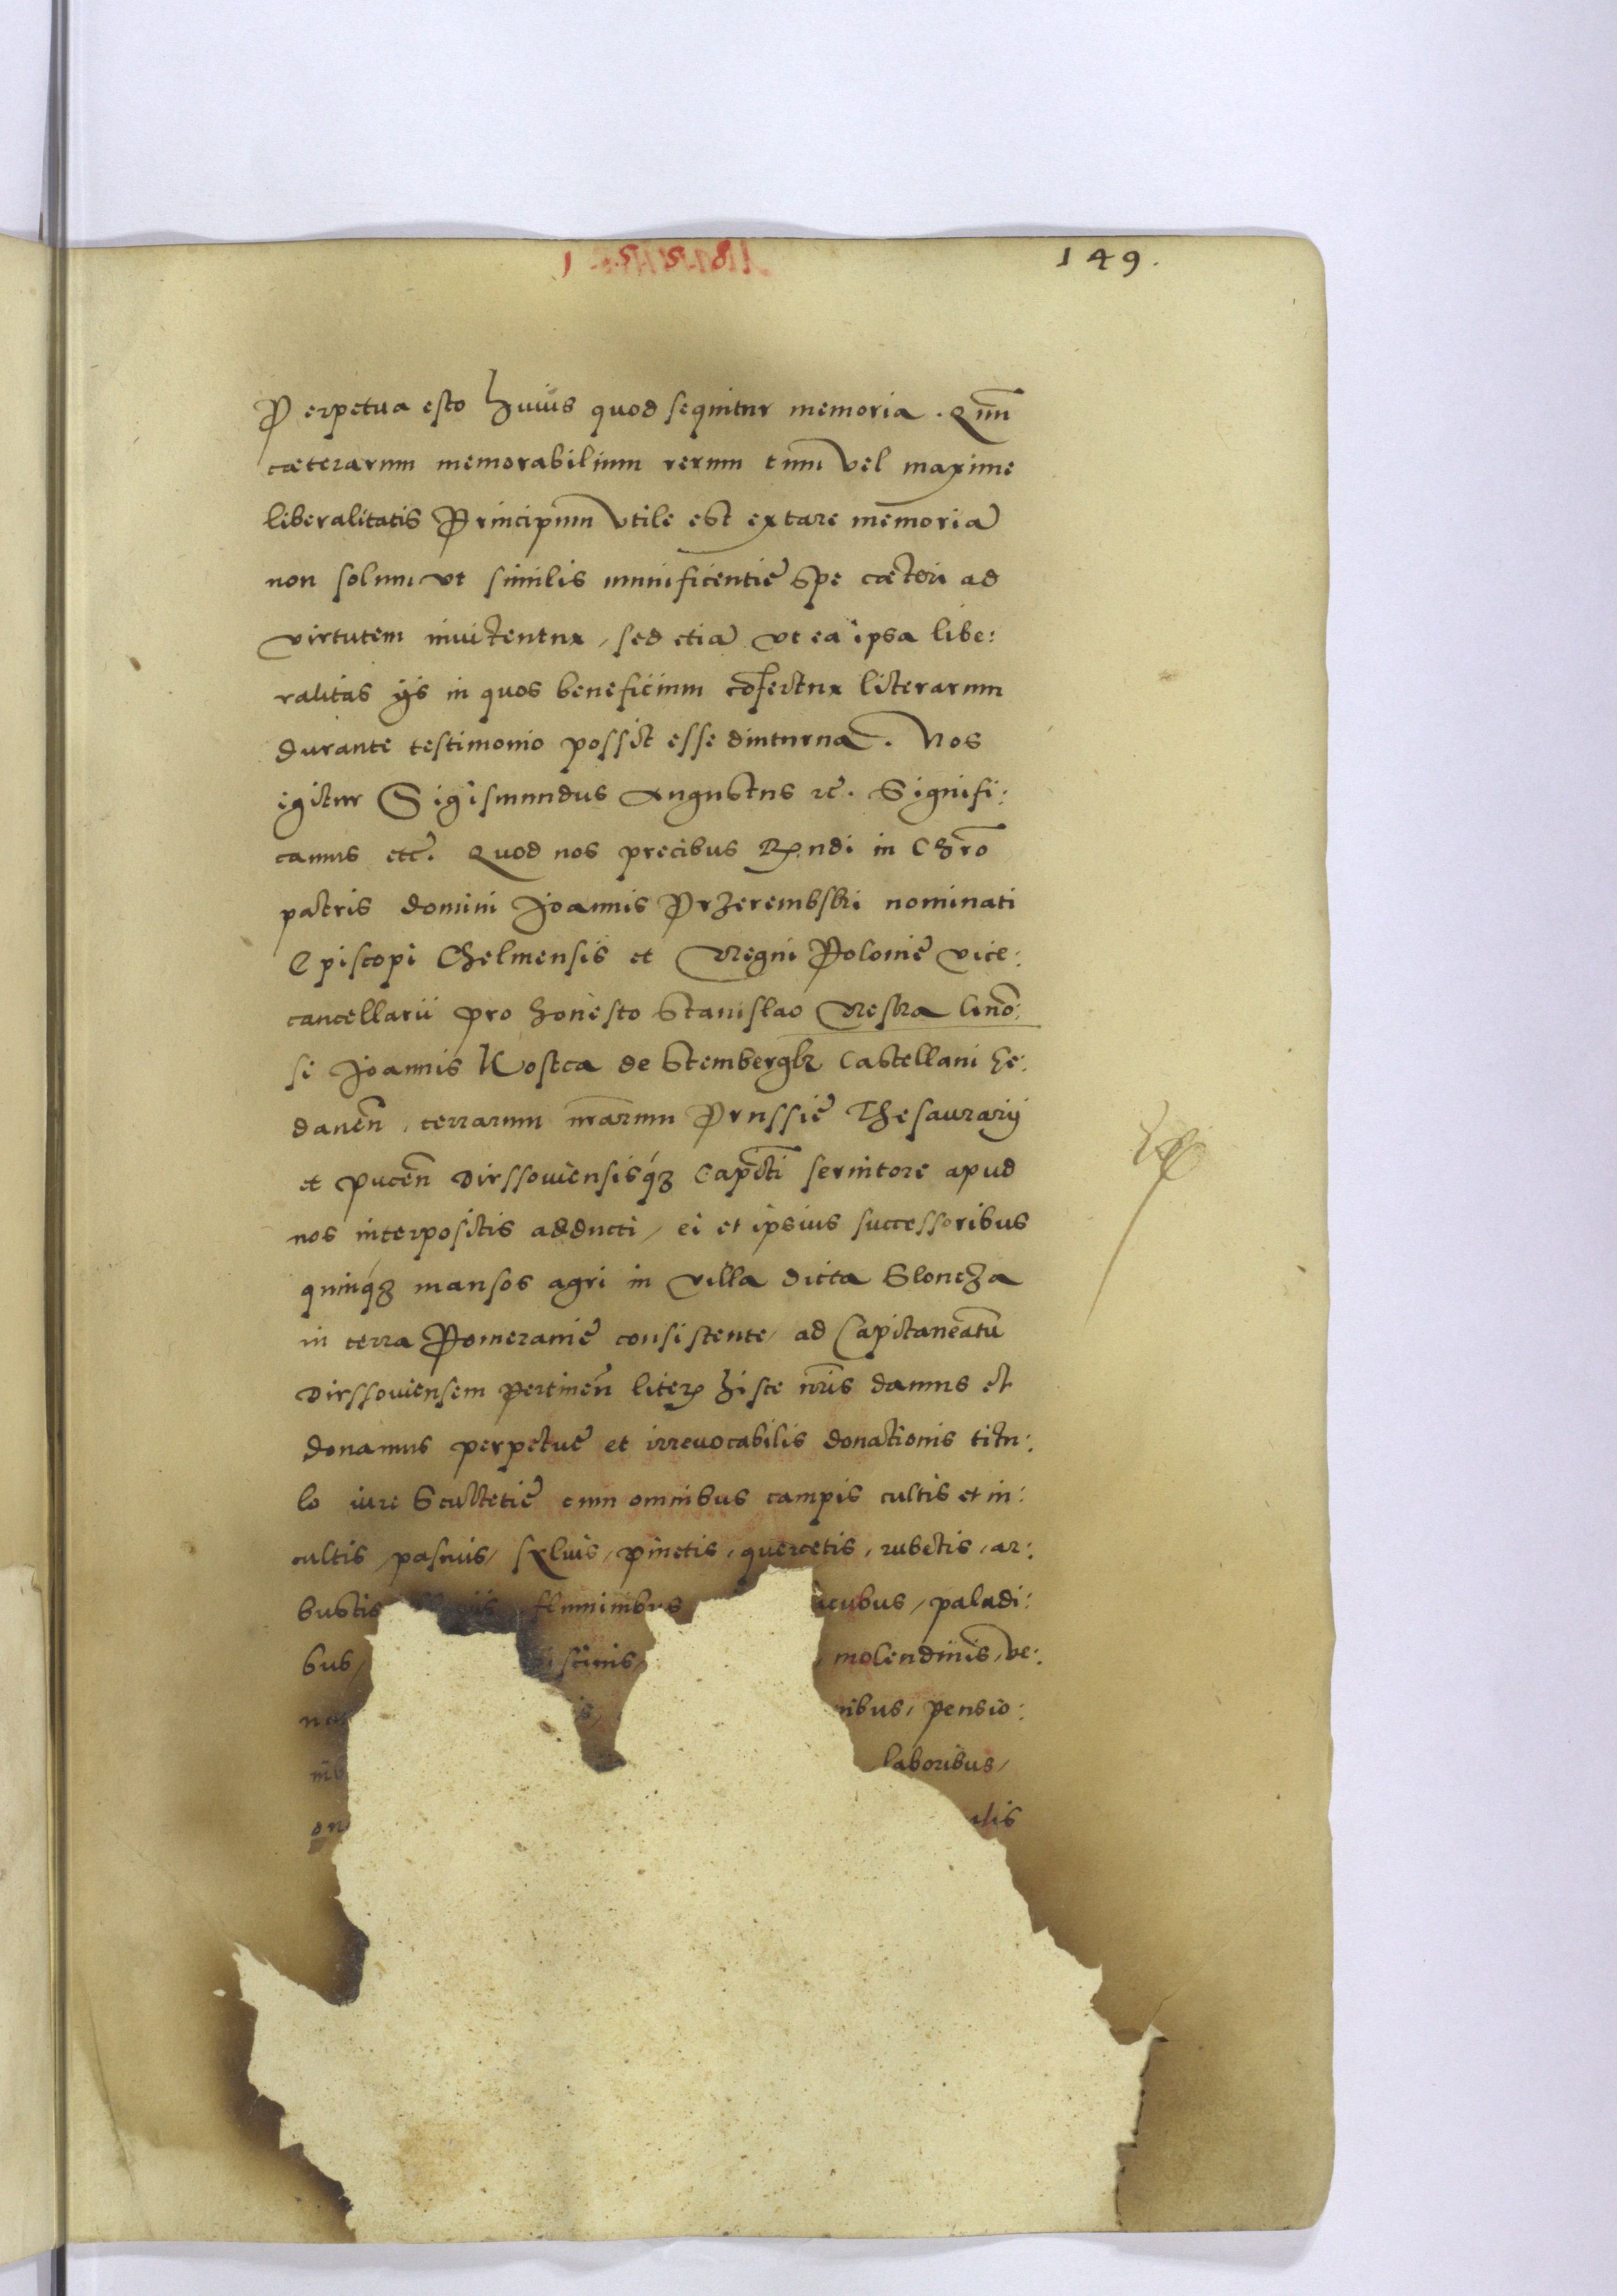 149.
Perpetua esto huius quod sequitur memoria. Qūm
cæterarum memorabilium rerum tum vel maxime
liberalitatis Principum vtile est extare memoriā
non solum vt similis munificentię spe cæteri ad
virtutem inuitentur, sed etiā vt ea ipsa libe:
ralitas ijs in quos beneficium cōfertur literarum
durante testimonio possit esse diuturna. Nos
igitur Sigismundus Augustus rē. Signifi:
camus etc̄. Quod nos precibus Rndi in Chr̄o
patris domini Joannis Przerembski nominati
Episcopi Chelmensis et Regni Polonię vice:
cancellarii pro honesto Stanislao
Joannis Kostca de Stembergk Castellani Ge:
danen̄, terrarum nr̄arum Prussię Thesaurarij
et pucen̄ Dirssouiensisq́ꝫ Cap̄ti seruitore apud
nos interpositis adducti, ei et ipsius successoribus
quinq́ꝫ mansos agri in villa dicta Sloncza
in terra Pomeranię consistente, ad Capitaneatū
Dirssouiensem pertinen̄ literꝭ hisce nr̄is damus et
donamus perpetuę et irreuocabilis donationis titu:
lo iure Scultetię cum omnibus campis cultis et in:
cultis, pascuis, syluis, pinetis, quercetis, rubetis, ar:
bustis fluminibus paladi:
bus, molendinis, ve:
nibus, pensio:
laboribus,